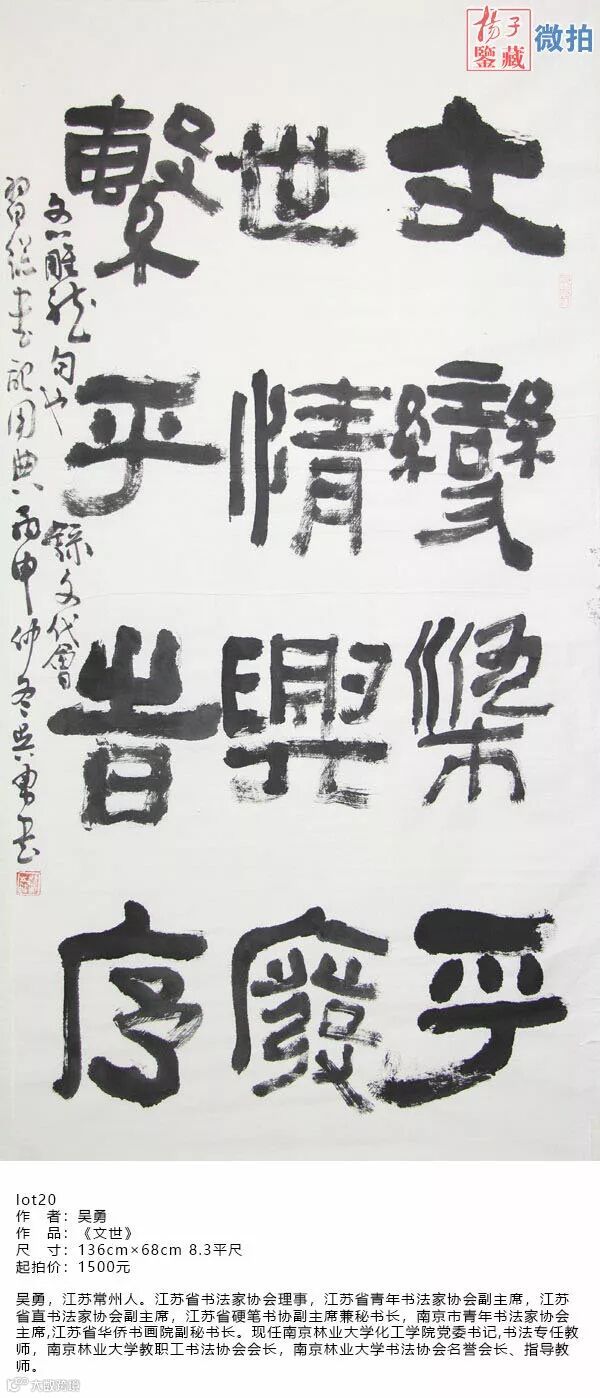 揚子
鑒藏
微拍
文變染乎
世情興廢
繫乎旹序
文心雕龍句也 録文代會
習總書記用典 丙申仲冬吳勇書
lot20
作 者：吴勇
作 品：《文世》
尺 寸：136cm×68cm 8.3平尺
起拍价：1500元
吴勇，江苏常州人。江苏省书法家协会理事，江苏省青年书法家协会副主席，江苏
省直书法家协会副主席，江苏省硬笔书协副主席兼秘书长，南京市青年书法家协会
主席,江苏省华侨书画院副秘书长。现任南京林业大学化工学院党委书记,书法专任教
师，南京林业大学教职工书法协会会长，南京林业大学书法协会名誉会长、指导教
师。
大数跨境